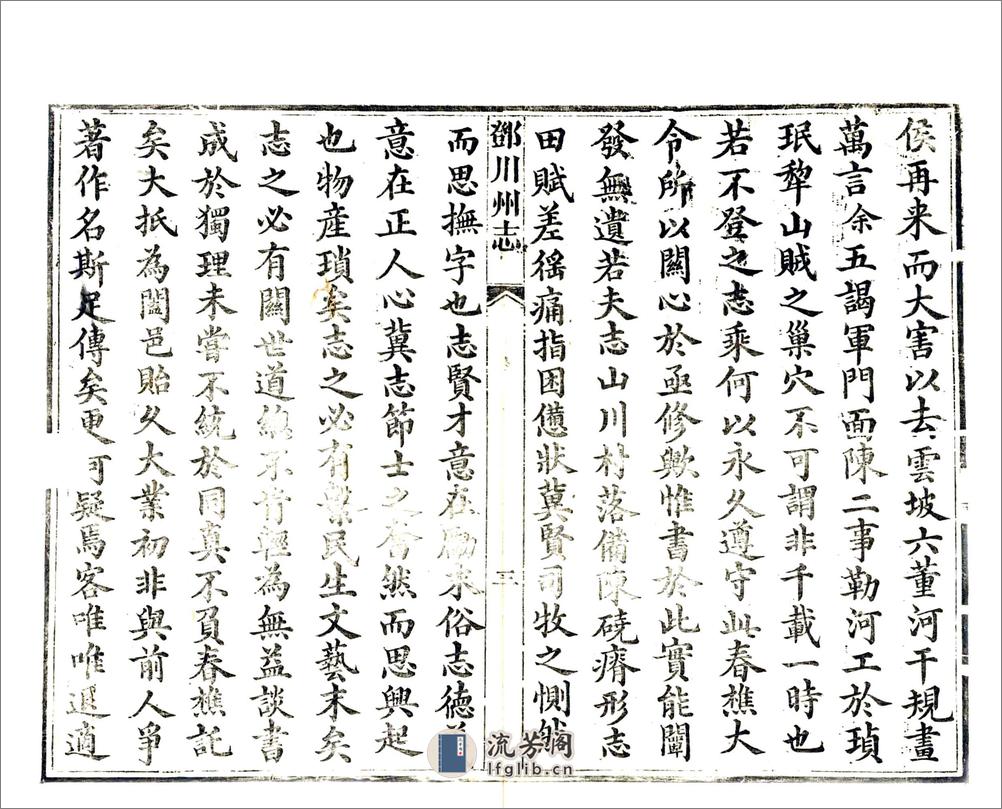 侯再来而大害以去雲坡六董河干規畫
萬言余五謁軍門面陳二事勒河工於瑣
珉犂山賊之巢穴不可謂非千載一時也
若不登之志乘何以永久遵守此春樵大
令所以關心於亟修歟惟書於此實能闡
發無遺若夫志山川村落備陳磽瘠形志
田賦差徭痛指困憊狀冀賢司牧之惻然
鄧川州志
二
而思撫字也志賢才意在勵末俗志德
意在正人心冀志節士之奮然而思興起
也物產瑣矣志之必有繫民生文藝末矣
志之必有關世道總不肯輕為無益談書
成於獨理未嘗不統於同真不負春樵託
矣大抵為闔邑貽久大業初非與前人爭
著作名斯足傳矣更可疑焉客唯唯退適
流芳閣
lfglib.cn